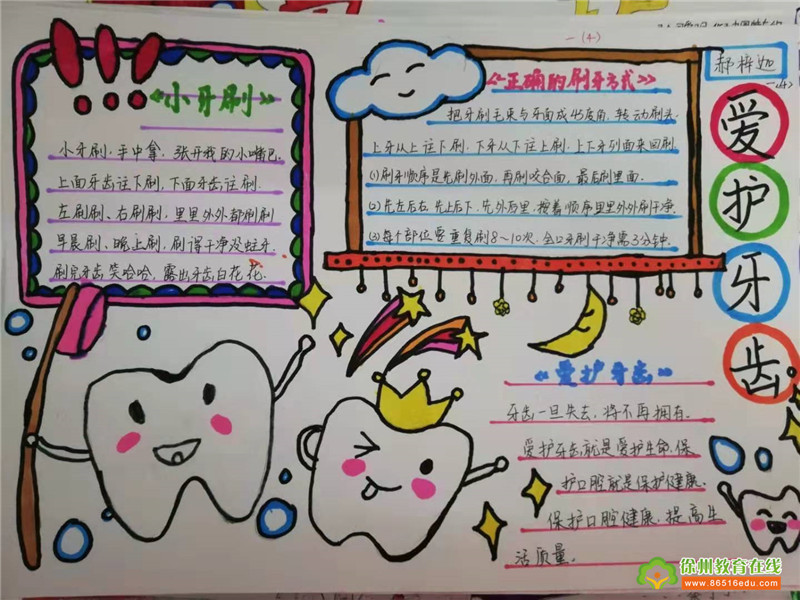 一(4)
郝梓迦
一(4)
爱
护
牙
齿
《小牙刷》
小牙刷,手中拿,张开我的小嘴巴.
上面牙齿往下刷,下面牙齿往刷.
左刷刷、右刷刷,里里外外都刷刷
早晨刷、晚上刷,刷得干净没蛀牙.
刷完牙齿笑哈哈,露出牙齿白花花.
《正确的刷牙方式》
把牙刷毛束与牙面成45度角,转动刷头.
上牙从上往下刷,下牙从下往上刷,上下牙列面来回刷.
(1)刷牙顺序是先刷外面,再刷咬合面,最后刷里面.
(2)先左后右,先上后下,先外后里,按着顺序里里外外刷干净.
(3)每个部位要重复刷8~10次,全口牙刷干净需3分钟.
《爱护牙齿》
牙齿一旦失去,将不再拥有.
爱护牙齿就是爱护生命,保
护口腔就是保护健康.
保护口腔健康,提高生
活质量.
徐州教育在线
www.86516edu.com